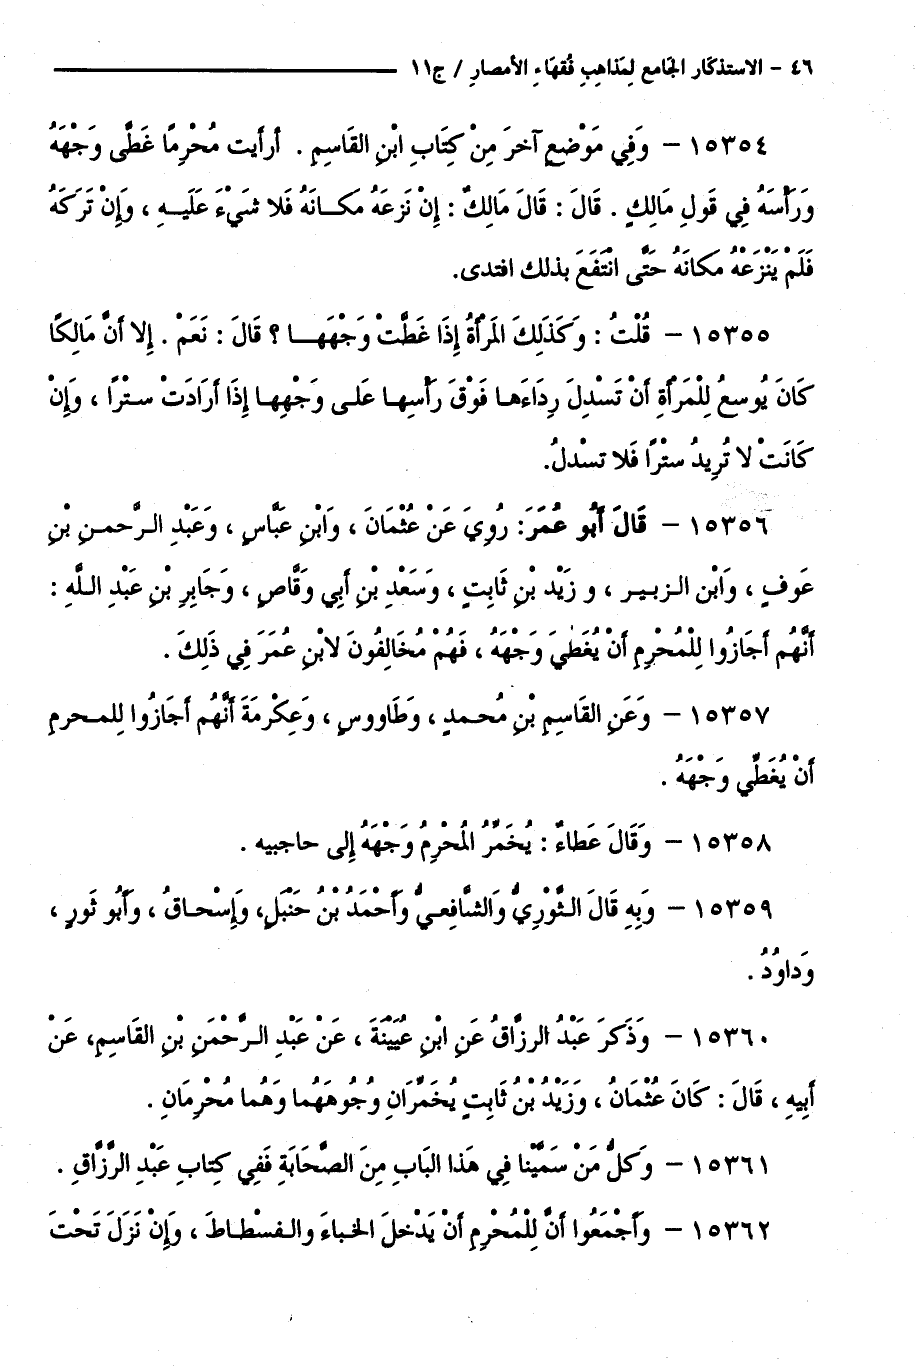 ٤٦ - الاستذكار الجامع لِمَذاهِبِ فُقهَاءِ الأمصارِ / ج١١
١٥٣٥٤ - وَفِي مَوْضعٍ آخرَ مِنْ كِتَابِ ابْنِ القَاسِمِ . أرأَيت مُحْرِمًا غَطَّى وَجْهَهُ
وَرَأْسَهُ فِي قَولِ مَالِكٍ . قَالَ : قَالَ مَالِكٌ : إِنْ نَزعَهُ مكَانَهُ فَلا شَيْءَ عَلَيهِ ، وَإِنْ تَرَكَهُ
فَلَمْ يَنْزعْهُ مكانَهُ حَتَّى انْتَفَعَ بذلك افتدى.
١٥٣٥٥ - قُلْتُ : وَكَذَلِكَ المَرْأَةُ إِذَا غَطَّتْ وَجْهَهَا ؟ قَالَ : نَعَمْ . إِلا أَنَّ مَالِكًا
كَانَ يُوسعُ لِلْمَرْأَةِ أَنْ تَسْدلَ رِدَاءَهَا فَوْقَ رَأْسِها عَلَى وَجْهِها إِذَا أَرَادَتْ سترًا ، وَإِنْ
كَانَتْ لا تُرِيدُ ستْرًا فَلا تسْدلُ.
١٥٣٥٦ - قَالَ أَبُو عُمَرَ: رُوِيَ عَنْ عُثْمَانَ ، وَابْنِ عَبَّاسٍ ، وَعَبْدِ الرَّحمنِ بْنِ
عَوفٍ ، وَابْنِ الزبيرِ ، و زَيْدِ بْنِ ثَابِتٍ ، وَسَعْدِ بْنِ أَبِي وَقَّاصٍ ، وَجَابِرِ بْنِ عَبْدِ اللَّهِ :
أَنَّهُم أَجَازُوا لِلْمُحْرِمِ أَنْ يُغَطيَ وَجْهَهُ ، فَهُمْ مُخَالِفُونَ لابْنِ عُمَرَ فِي ذَلِكَ .
١٥٣٥٧ - وَعَنِ القَاسِمِ بْنِ مُحمدٍ ، وَطَاووسٍ ، وَعِكْرمَةَ أَنَّهُم أَجَازُوا للمحرمِ
أَنْ يُغَطِّي وَجْهَهُ .
١٥٣٥٨ - وَقَالَ عَطاءٌ : يُخَمِّرُ المُحْرِمُ وَجْهَهُ إِلى حاجبيه .
١٥٣٥٩ - وَبِهِ قَالَ الثَّوْرِيُّ وَالشَّافعيُّ وَأَحْمَدُ بْنُ حَنْبَلٍ، وَإِسْحاقُ ، وَأَبُو ثَورٍ ،
وَداوُدُ .
١٥٣٦٠ - وَذَكرَ عَبْدُ الرزَّاقُ عَنِ ابْنِ عُيَيْنَةَ ، عَنْ عَبْدِ الرَّحْمَنِ بْنِ القَاسِمِ، عَنْ
أَبِيهِ ، قَالَ : كَانَ عُثْمَانُ ، وَزَيْدُ بْنُ ثَابِتٍ يُخَمِّرَانِ وُجُوهَهُما وَهُما مُحْرِمَانِ .
١٥٣٦١ - وَكلُّ مَنْ سَمَّيْنا فِي هَذا البَابِ مِنَ الصَّحَابَةِ فَفِي كِتابِ عَبْدِ الرَّزَّاقِ .
١٥٣٦٢ - وَأَجْمَعُوا أَنَّ لِلْمُحْرِمِ أَنْ يَدْخلَ الخباءَ والفسْطاطَ ، وَإِنْ نَزَلَ تَحْتَ